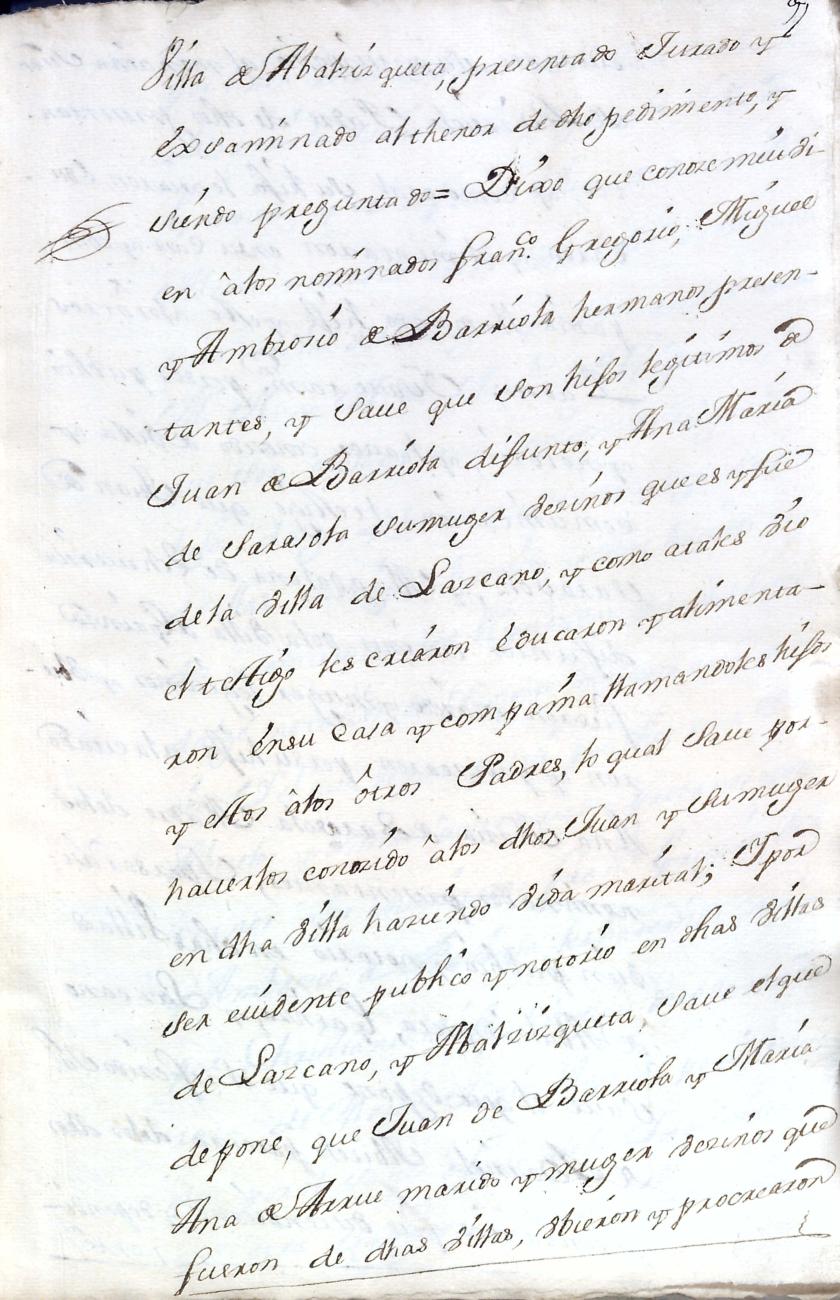 Villa de Abalzizqueta, presentado Jurado y
éxsaminado al thenor de dho pedimiento, y
siéndo preguntado= Dixo que conoze mui bi-
en âlos nominados Fran.co Gregorio, Miguel
y Ambrosio de Barriola hermanos presen-
tantes, y save que son hijos legitimos de
Juan de Barriola difunto, y Ana Maria
de Sarasola su muger vezinos que es y fue
de la villa de Lazcano, y como atales vio
el testigo les criáron éducaron y alimenta-
ron énsu Casa y compañia llamandoles hijos
y estos âlos ôtros Padres, lo qual save por-
haverlos conozido âlos dhos Juan y su muger
en dha villa haziéndo vida marital; Y por
ser evidente publico y notorio en dhas villas
de Lazcano, y Abalzizqueta, save el que
depone, que Juan de Barriola y Maria
Ana de Arrue marido y muger vezinos que
fueron de dhas villas, vbieron y procrearon